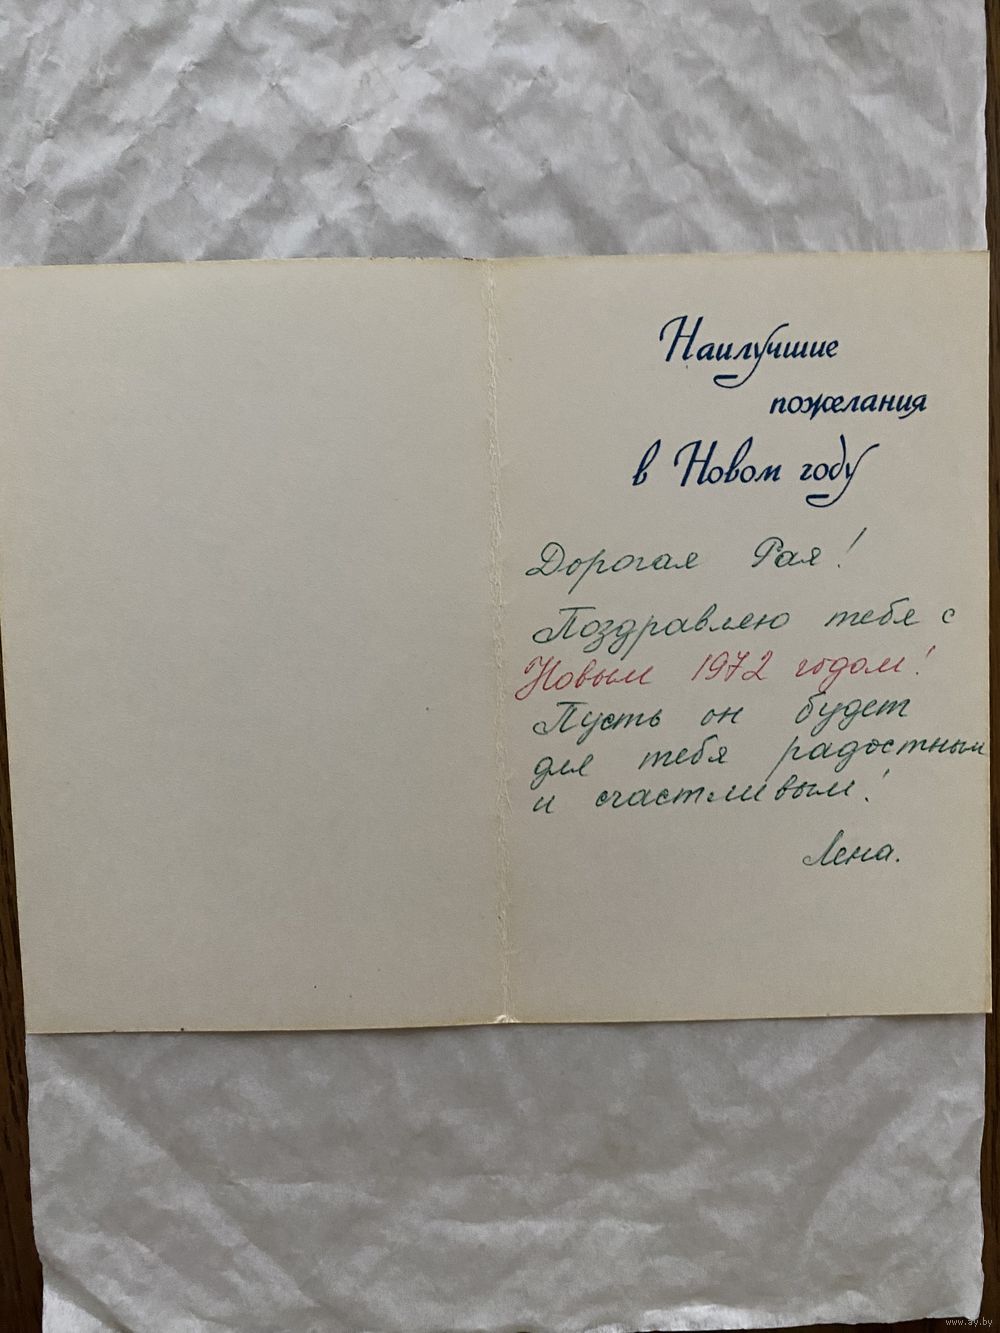 Наилучшие
пожелания
в Новом году
Дорогая Рая!
Поздравляю тебя с
Новым 1972 годом!
Пусть он будет
для тебя радостным
и счастливым!
Лена.
www.ay.by